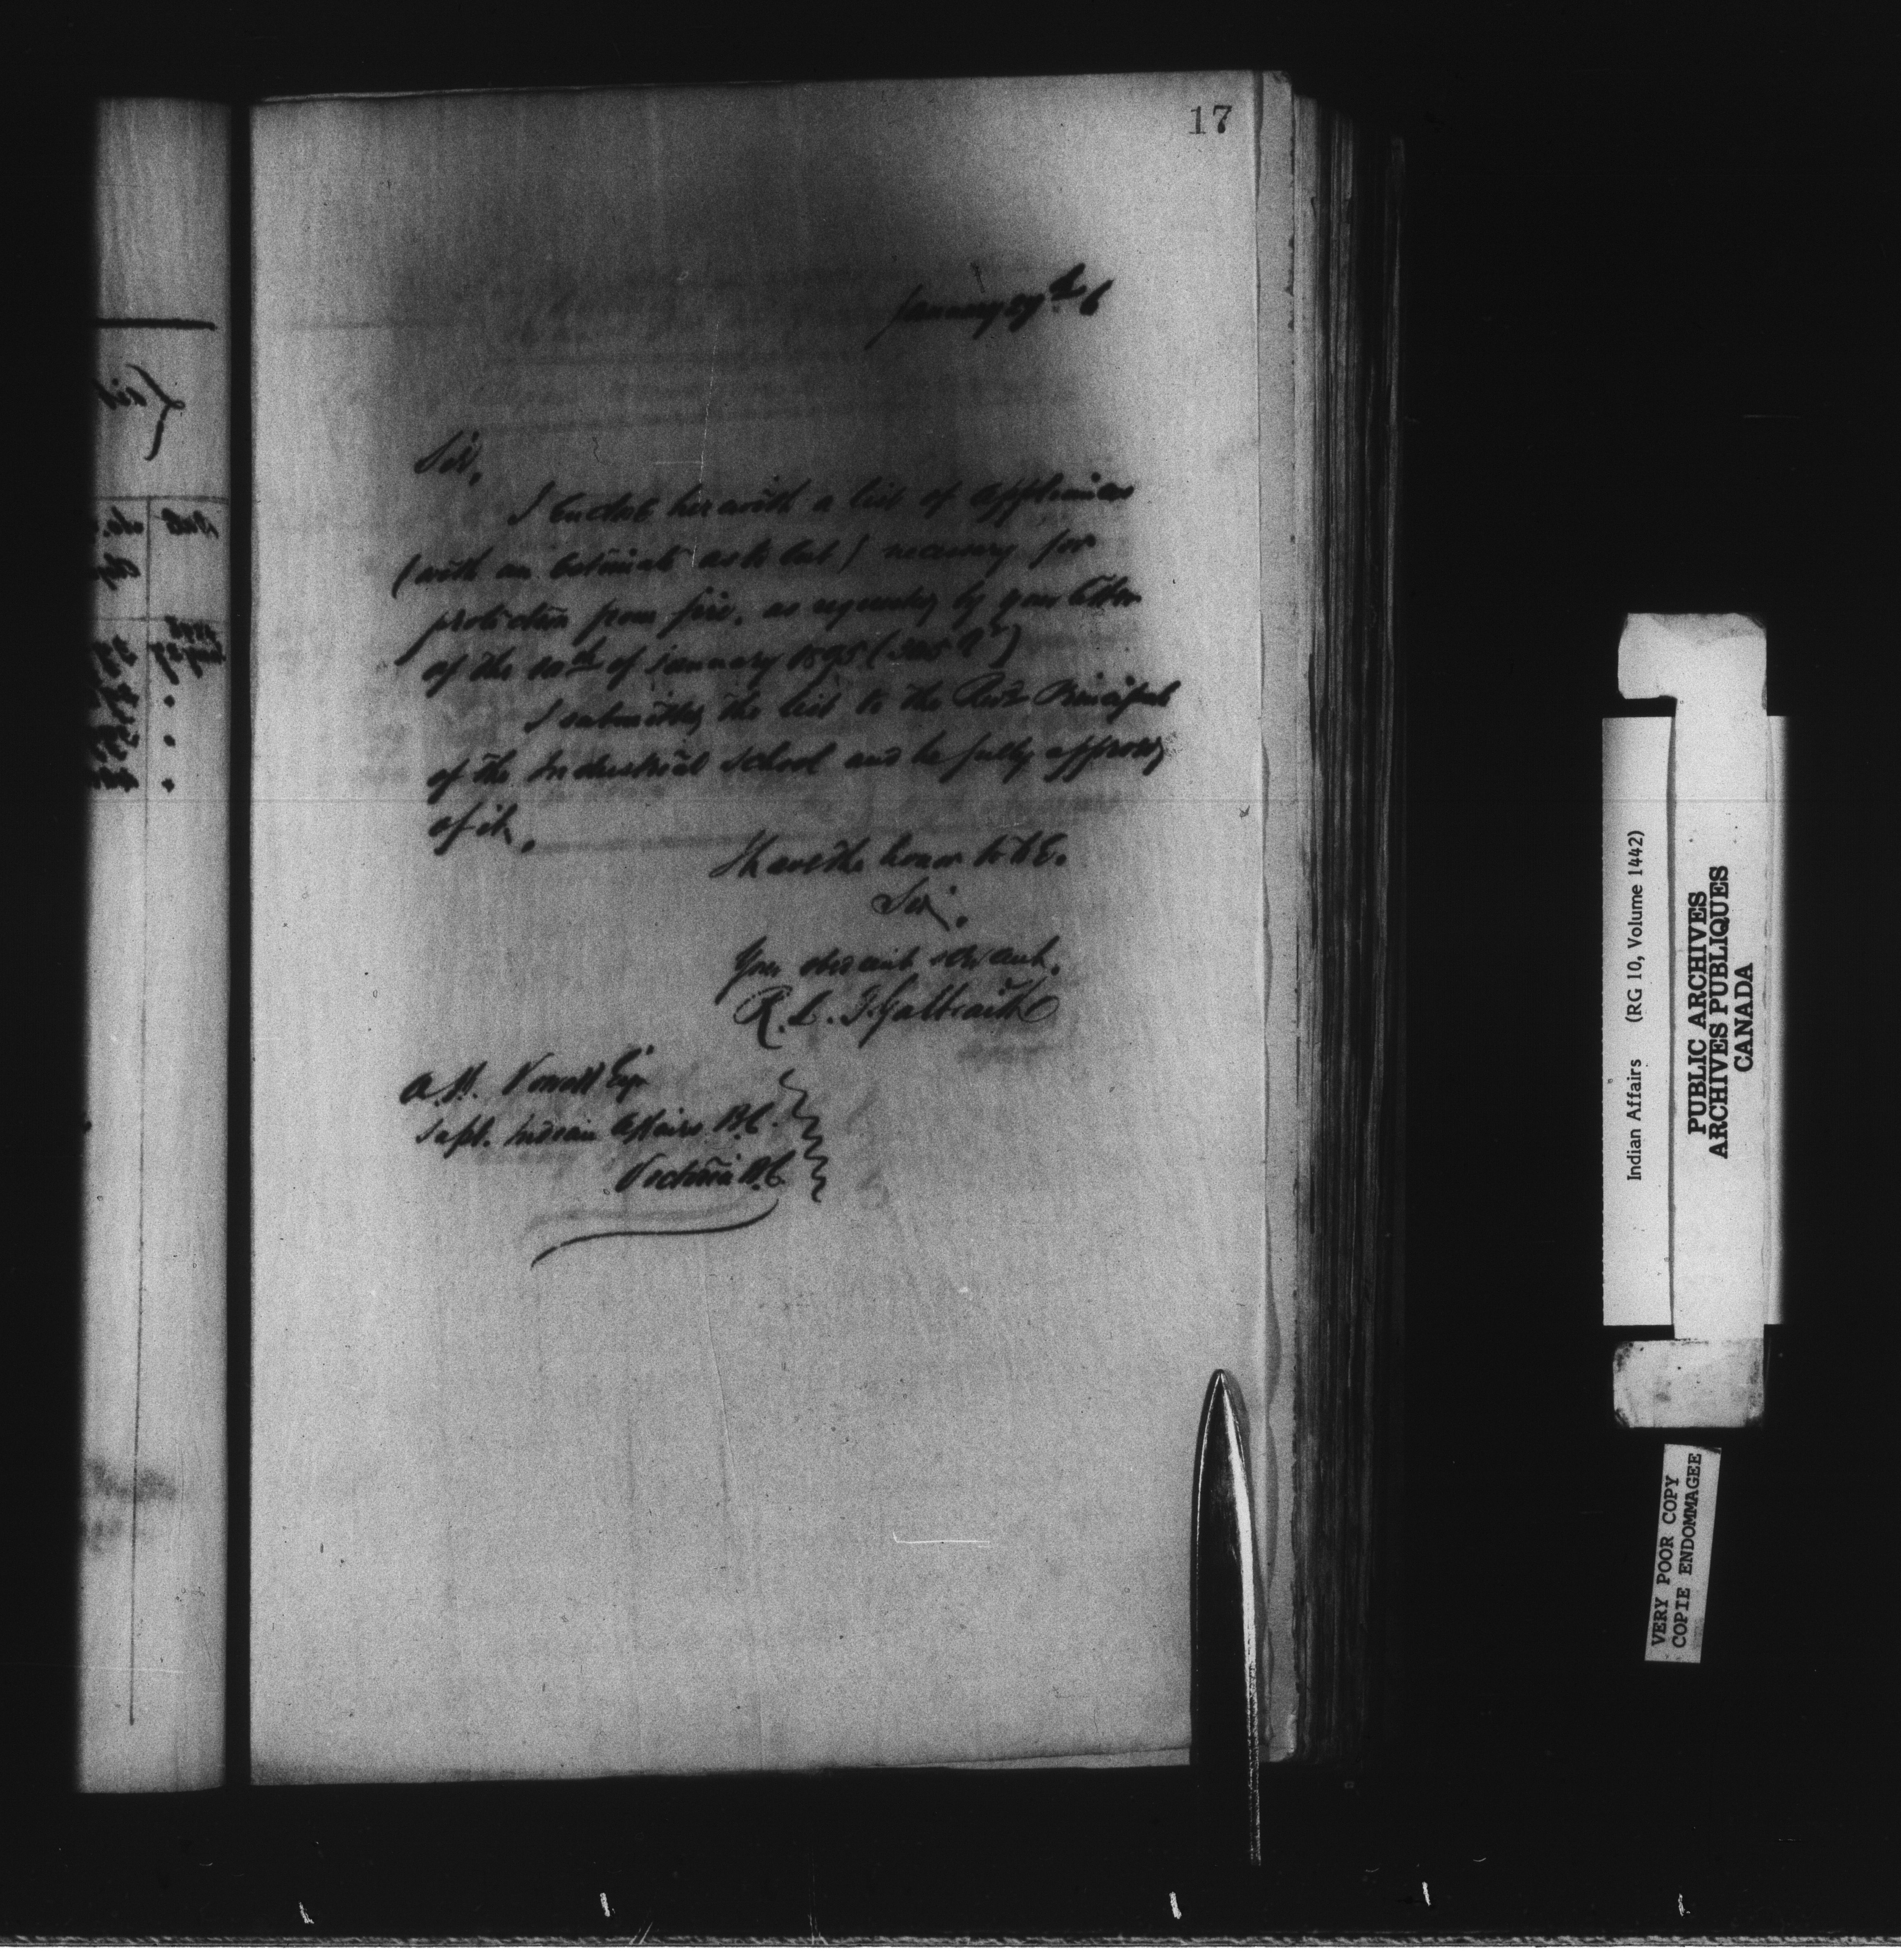 17
January 29th 6
Sir,
I Enclose herewith a list of appliances
(with an Estimate as to cost) necessary for
protection from fire, as requested by your letter
of the 10th of January 1895
I submitted the list to the Revd Principal
of the Industrial School and he fully approved
of it.
I have the honor to be.
Sir,
Your obedient servant.
R. L. T. Galbraith
A. W. Vowell Esqr
Supt. Indian Affairs B.C.
Victoria B.C.
Indian Affairs (RG 10, Volume 1442)
PUBLIC ARCHIVES
ARCHIVES PUBLIQUES
CANADA
VERY POOR COPY
COPIE ENDOMMAGEE